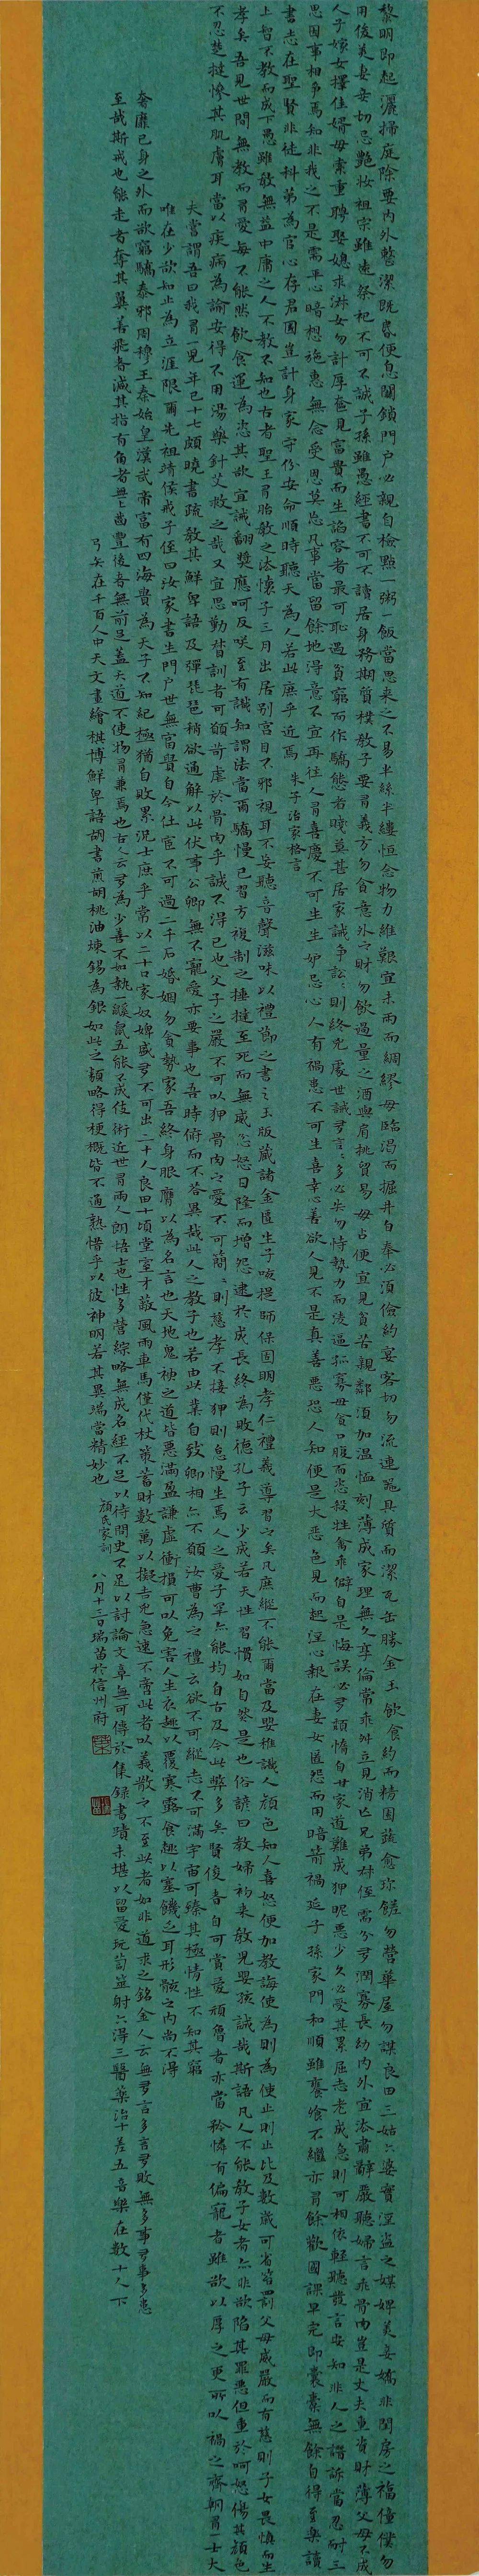 黎明即起灑掃庭除要內外整潔既昏便息關鎖門戶必親自檢點一粥一飯當思來之不易半絲半縷恒念物力維艱宜未雨而綢繆毋臨渴而掘井自奉必須儉約宴客切勿流連器具質而潔瓦缶勝金玉飲食約而精園蔬愈珍饈勿營華屋勿謀良田三姑六婆實淫盜之媒婢美妾嬌非閨房之福僮僕勿
用俊美妻妾切忌艷妝祖宗雖遠祭祀不可不誠子孫雖愚經書不可不讀居身務期質樸教子要有義方勿貪意外之財勿飲過量之酒與肩挑貿易毋占便宜見貧苦親鄰須加温恤刻薄成家理無久享倫常乖舛立見消亡兄弟叔侄需分多潤寡長幼內外宜法肅辭嚴聽婦言乖骨肉豈是丈夫重資財薄父母不成
人子嫁女擇佳婿毋索重聘娶媳求淑女勿計厚奩見富貴而生諂容者最可恥遇貧窮而作驕態者賤莫甚居家誡爭訟訟則終凶處世誡多言言多必失勿恃勢力而淩逼孤寡毋貪口腹而恣殺牲禽乖僻自是悔誤必多頹惰自甘家道難成狎昵惡少久必受其累屈志老成急則可相依輕聽發言安知非人之譖訴當忍耐三
思因事相爭焉知非我之不是需平心暗想施惠無念受恩莫忘凡事當留餘地得意不宜再往人有喜慶不可生生妒忌心人有禍患不可生喜幸心善欲人見不是真善惡恐人知便是大惡色見而起淫心報在妻女匿怨而用暗箭禍延子孫家門和順雖饔飧不繼亦有餘歡國課早完即囊橐無餘自得至樂讀
書志在聖賢非徒科第為官心存君國豈計身家守份安命順時聽天為人若此庶乎近焉 朱子治家格言
上智不教而成下愚雖教無益中庸之人不教不知也古者聖王有胎教之法懷子三月出居別宮目不邪視耳不妄聽音聲滋味以禮節之書之玉版藏諸金匱生子咳提師保固明孝仁禮義導習之矣凡庶縱不能爾當及嬰稚識人顏色知人喜怒便加教誨使為則為使止則止比及數歲可省笞罰父母威嚴而有慈則子女畏慎而生
孝矣吾見世間無教而有愛每不能然飲食運為恣其欲宜誡翻獎應呵反咲至有識知謂法當爾驕慢已習方複制之捶撻至死而無威忿怒日隆而增怨逮於成長終為敗德孔子云少成若天性習慣如自然是也俗諺曰教婦初來教兒嬰孩誠哉斯語凡人不能教子女者亦非欲陷其罪惡但重於呵怒傷其顏色
不忍楚撻慘其肌膚耳當以疾病為諭安得不用湯藥針艾救之哉又宜思勤督訓者可願苛虐於骨肉乎誠不得已也父子之嚴不可以狎骨肉之愛不可簡簡則慈孝不接狎則怠慢生焉人之愛子罕亦能均自古及今此弊多矣賢俊者自可賞愛頑魯者亦當矜憐有偏寵者雖欲以厚之更所以禍之齊朝有一士大
夫嘗謂吾曰我有一兒年已十七頗曉書疏教其鮮卑語及彈琵琶稍欲通解以此伏事公卿無不寵愛亦要事也吾時俯而不答異哉此人之教子也若由此業自致卿相亦不願汝曹為之 禮云欲不可縱志不可滿宇宙可臻其極情性不知其窮
唯在少欲知止為立涯限爾先祖靖侯戒子侄曰汝家書生門戶世無富貴自今仕宦不可過二千石婚姻勿貪勢家吾終身服膺以為名言也天地鬼神之道皆惡滿盈謙虛衝損可以免害人生衣趣以覆寒露食趣以塞饑乏耳形骸之內尚不得
奢靡己身之外而欲窮驕泰邪周穆王秦始皇漢武帝富有四海貴為天子不知紀極猶自敗累況士庶乎常以二十口家奴婢盛多不可出二十人良田十頃堂室才蔽風雨車馬僅代杖策蓄財數萬以擬吉凶急速不啻此者以義散之不至此者如非道求之銘金人云無多言多言多敗無多事多事多患
至哉斯戒也能走者奪其翼善飛者減其指有角者無上齒豐後者無前足蓋天道不使物有兼焉也古人云多為少善不如執一鼫鼠五能不成伎術近世有兩人朗悟士也性多營綜略無成名經不足以待問史不足以討論文章無可傳於集錄書蹟未堪以留愛玩筮射六得三醫藥治十差五音樂在數十人下
弓矢在千百人中天文畫繪棋博鮮卑語胡書煎胡桃油煉錫為銀如此之類略得梗概皆不通熟惜乎以彼神明若其異端當精妙也 顏氏家訓 八月十三日瑞苗於信州府